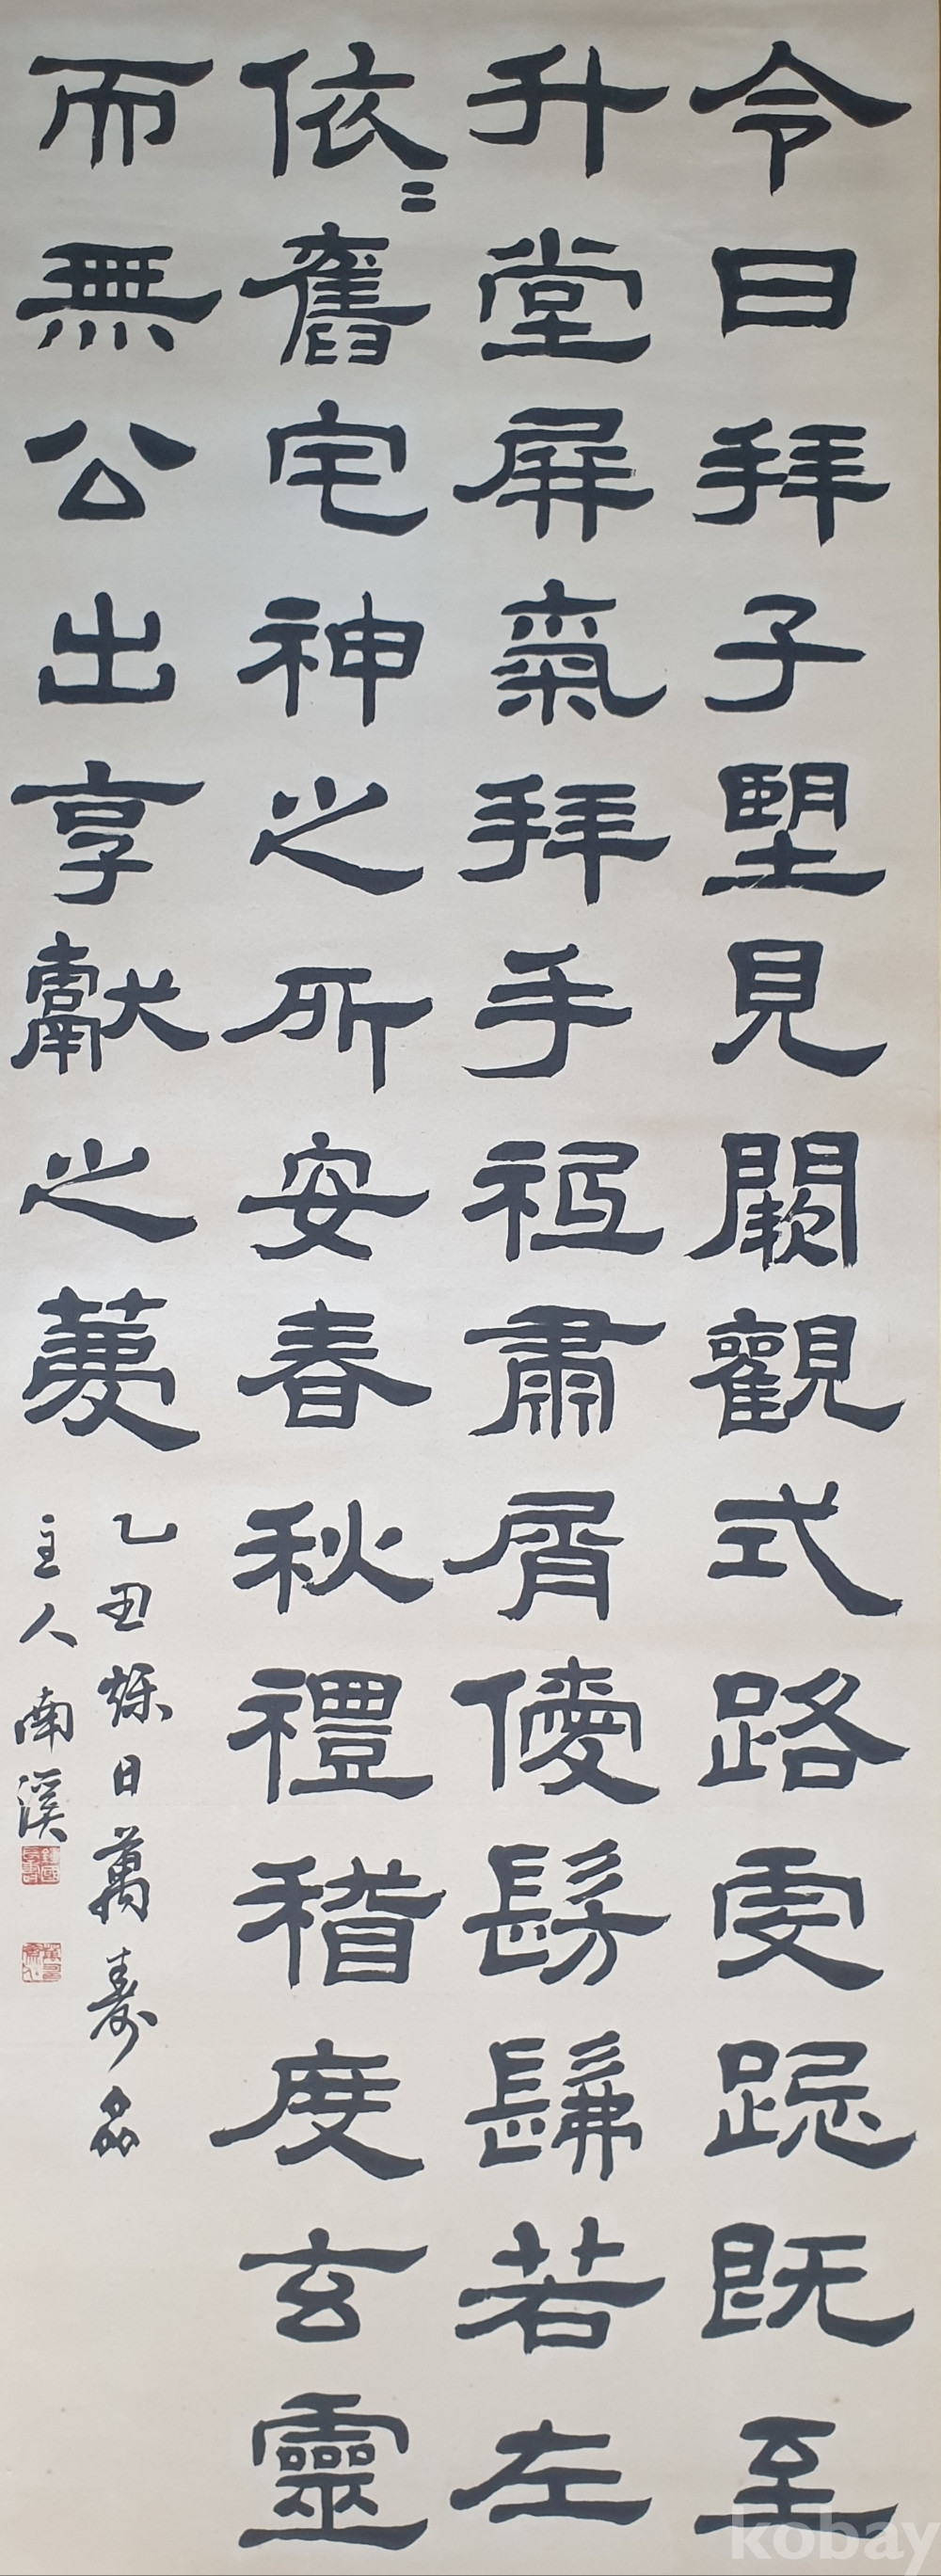 令日拜子望見闕觀式路虔跽既至
升堂屏氣拜手祗肅屑僾髣髴若左
依〻舊宅神之所安春秋禮稽度玄靈
而無公出享獻之薦
乙丑 日萬壽
主人南溪
kobay